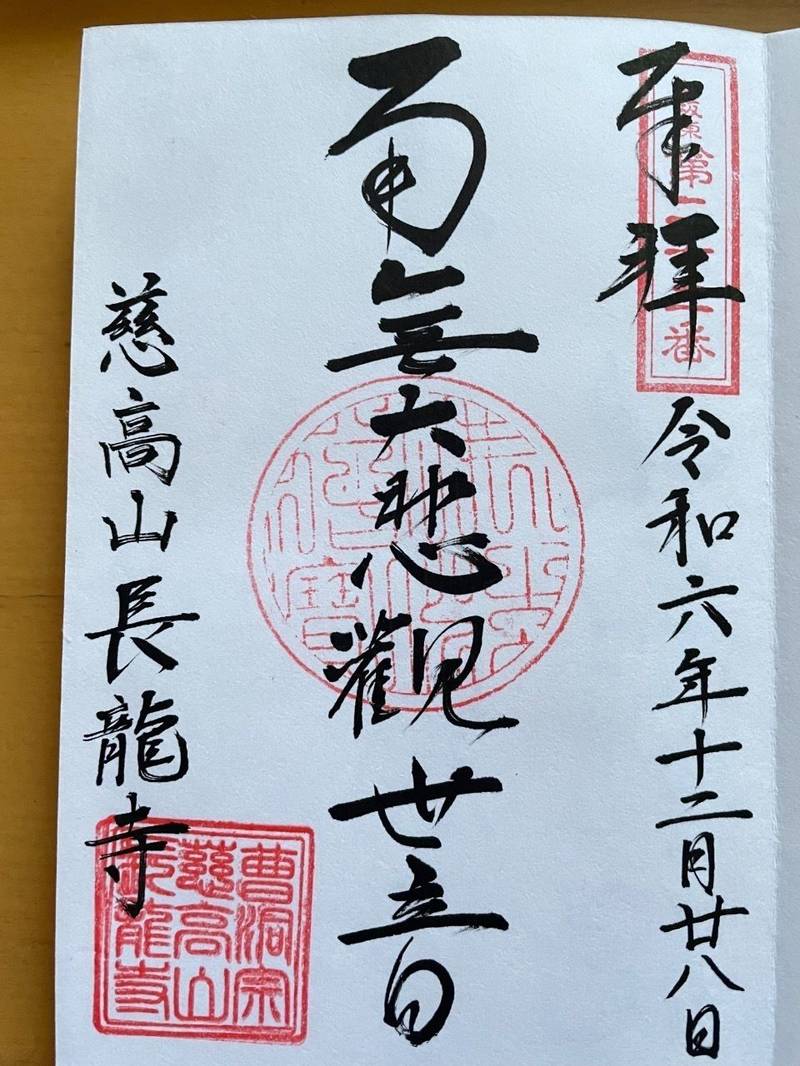 奉拝
令和六年十二月廿八日
南無大悲觀世音
慈高山長龍寺
曹洞宗
慈高山
長龍寺